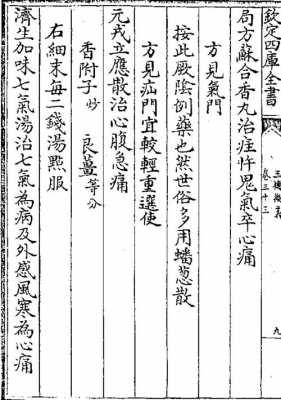 欽定四庫全書
卷三十三
九
局方蘇合香丸治疰忤鬼氣卒心痛
方見氣門
按此厥陰例藥也然世俗多用蟠葱散
方見疝門宜較輕重選使
元戎立應散治心腹急痛
香附子炒　良薑等分
右細末每二錢湯㸃服
濟生加味七氣湯治七氣為病及外感風寒為心痛